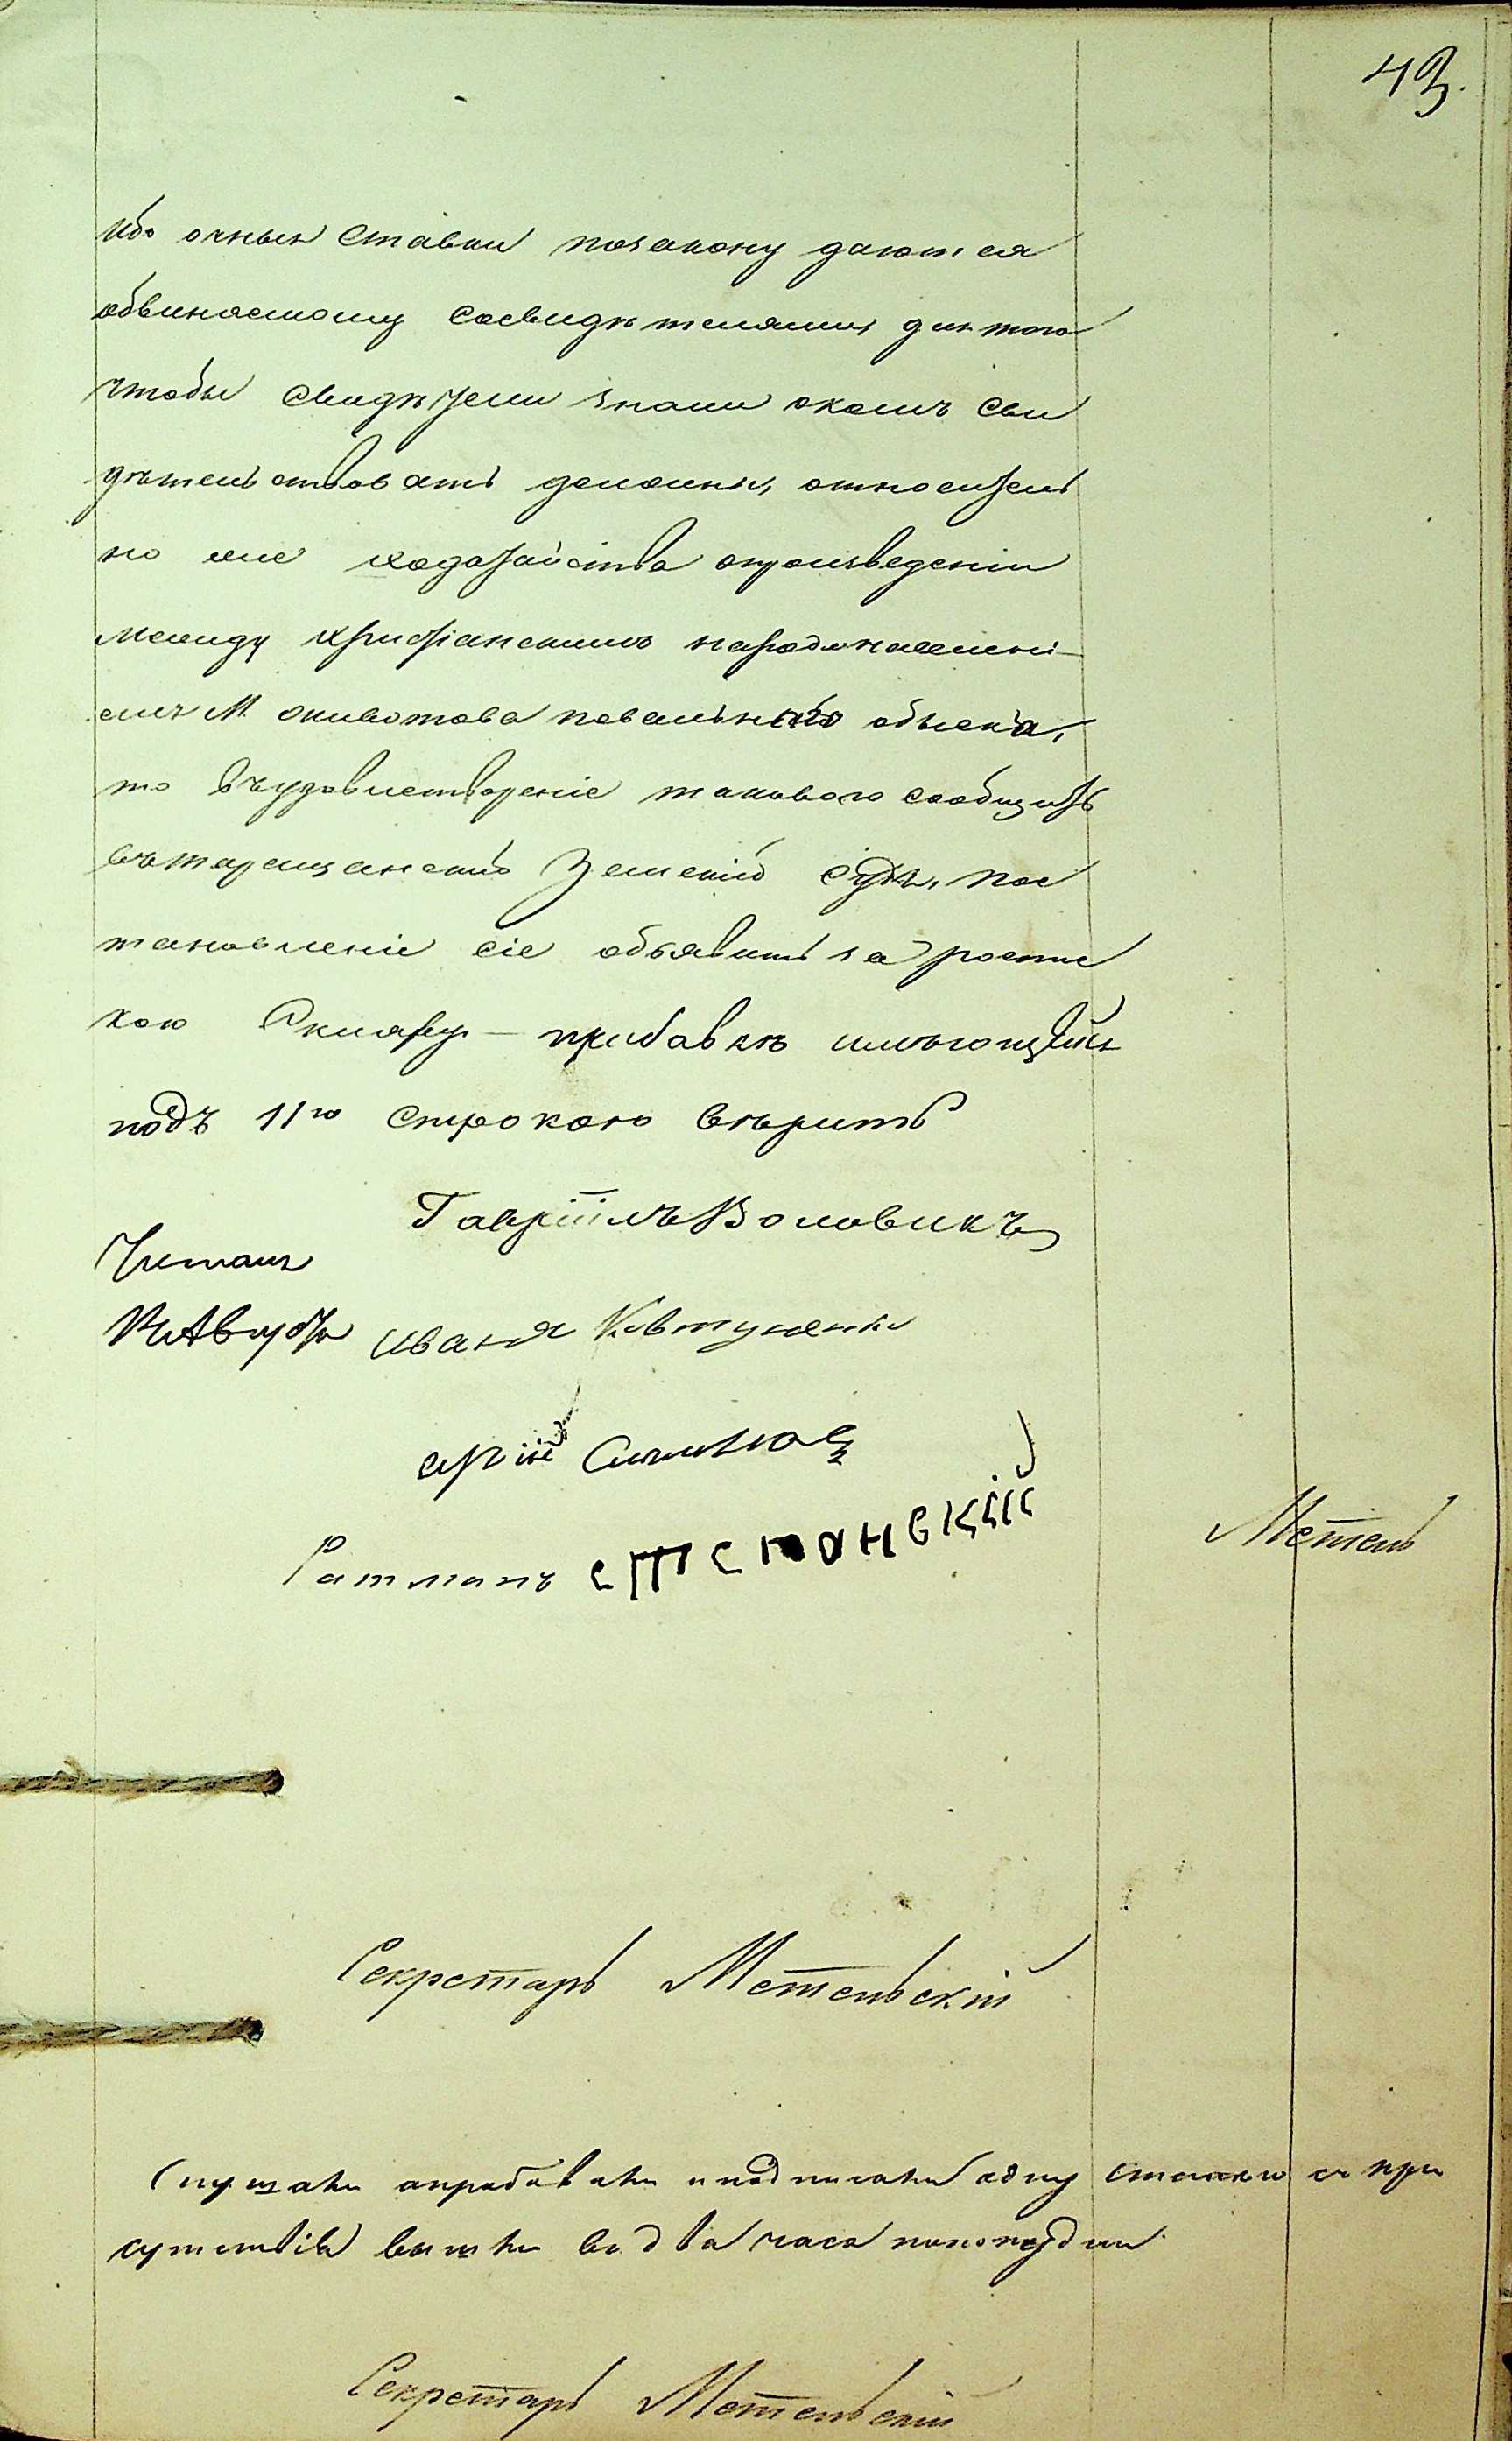 43.
ибо очныя ставки позакону даются
обвиняемому сосвидѣтелями для того
чтобы свидѣтели знали окомъ сви
дѣтельствовать должны, относитель
но же ходатайства опроизведеніи
между христіанскимъ народонаселені-
емъ М. Животова повальнаго обыска,
то въудовлетвореніе таковаго сообщить
въ таращанскій Земскій судъ, пос
тановленіе сіе объявить за роспис
кою Скляру — прибавкѣ имѣющейся
подъ 11ю строкою вѣрить
Гавріилъ Воловикъ
Читалъ
Иванъ Ковтуненко
Ратманъ Степановскій
Метель
Секретарь Метельскій
Слушали апробовали иподписали одну статью и при
сутствія вышли въ два часа пополудни
Секретарь Метельскій